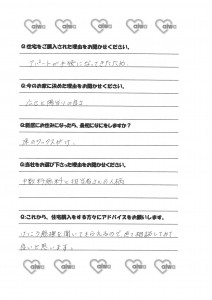 Q:住宅をご購入された理由をお聞かせください。
アパートが手狭になってきたため
Q:今のお家に決めた理由をお聞かせください。
広さと陽当りの良さ
Q:新居にお住みになったら、最初になにをしますか?
床のワックスがけ
Q:当社をお選び下さった理由をお聞かせください。
手数料無料と担当者さんの人柄
Q:これから、住宅購入をする方々にアドバイスをお願いします。
けっこう無理を聞いてもらえるので 色々相談してみて
良いと思います。